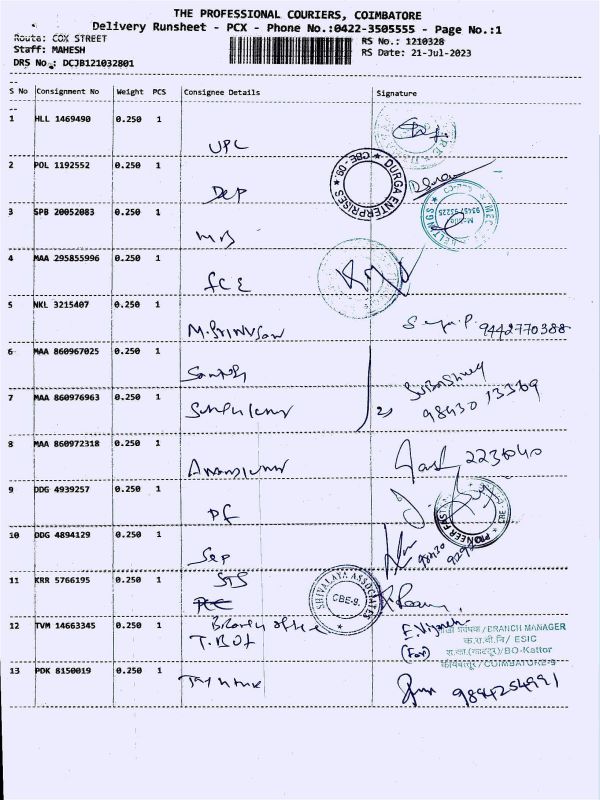 THE PROFESSIONAL COURIERS, COIMBATORE
Delivery Runsheet - PCX - Phone No.:0422-3505555 - Page No.:1
Route: COX STREET
RS No.: 1210328
Staff: MAHESH
RS Date: 21-Jul-2023
DRS No.: DCJB121032801
S No Consignment No Weight PCS Consignee Details Signature
1 HLL 1469490 0.250 1
UPC
2 POL 1192552 0.250 1
DURGA ENTERPRISES ★ CBE-09 ★
Dep
3 SPB 20052083 0.250 1
BELTINGS ★ MEC
Mobile
93457 95225
4 MAA 295855996 0.250 1
fCE
5 NKL 3215407 0.250 1
M.Srinivsan
9442770388
6 MAA 860967025 0.250 1
Santosh
7 MAA 860976963 0.250 1
2) 98430 13369
8 MAA 860972318 0.250 1
2230040
9 DDG 4939257 0.250 1
Pf
PIONEER FAST CBE
10 DDG 4894129 0.250 1
Sep
11 KRR 5766195 0.250 1
STS
SHIVALAYA ASSOCIATES
CBE-9.
12 TVM 14663345 0.250 1
Branch office
T.BOI
E.Vignesh
(For)
/BRANCH MANAGER
क.रा.बी.नि/ ESIC
श.का.(काट्टूर)/BO-Kattor
कोयंबत्तूर/COIMBATORE-9
13 PDK 8150019 0.250 1
9894254991